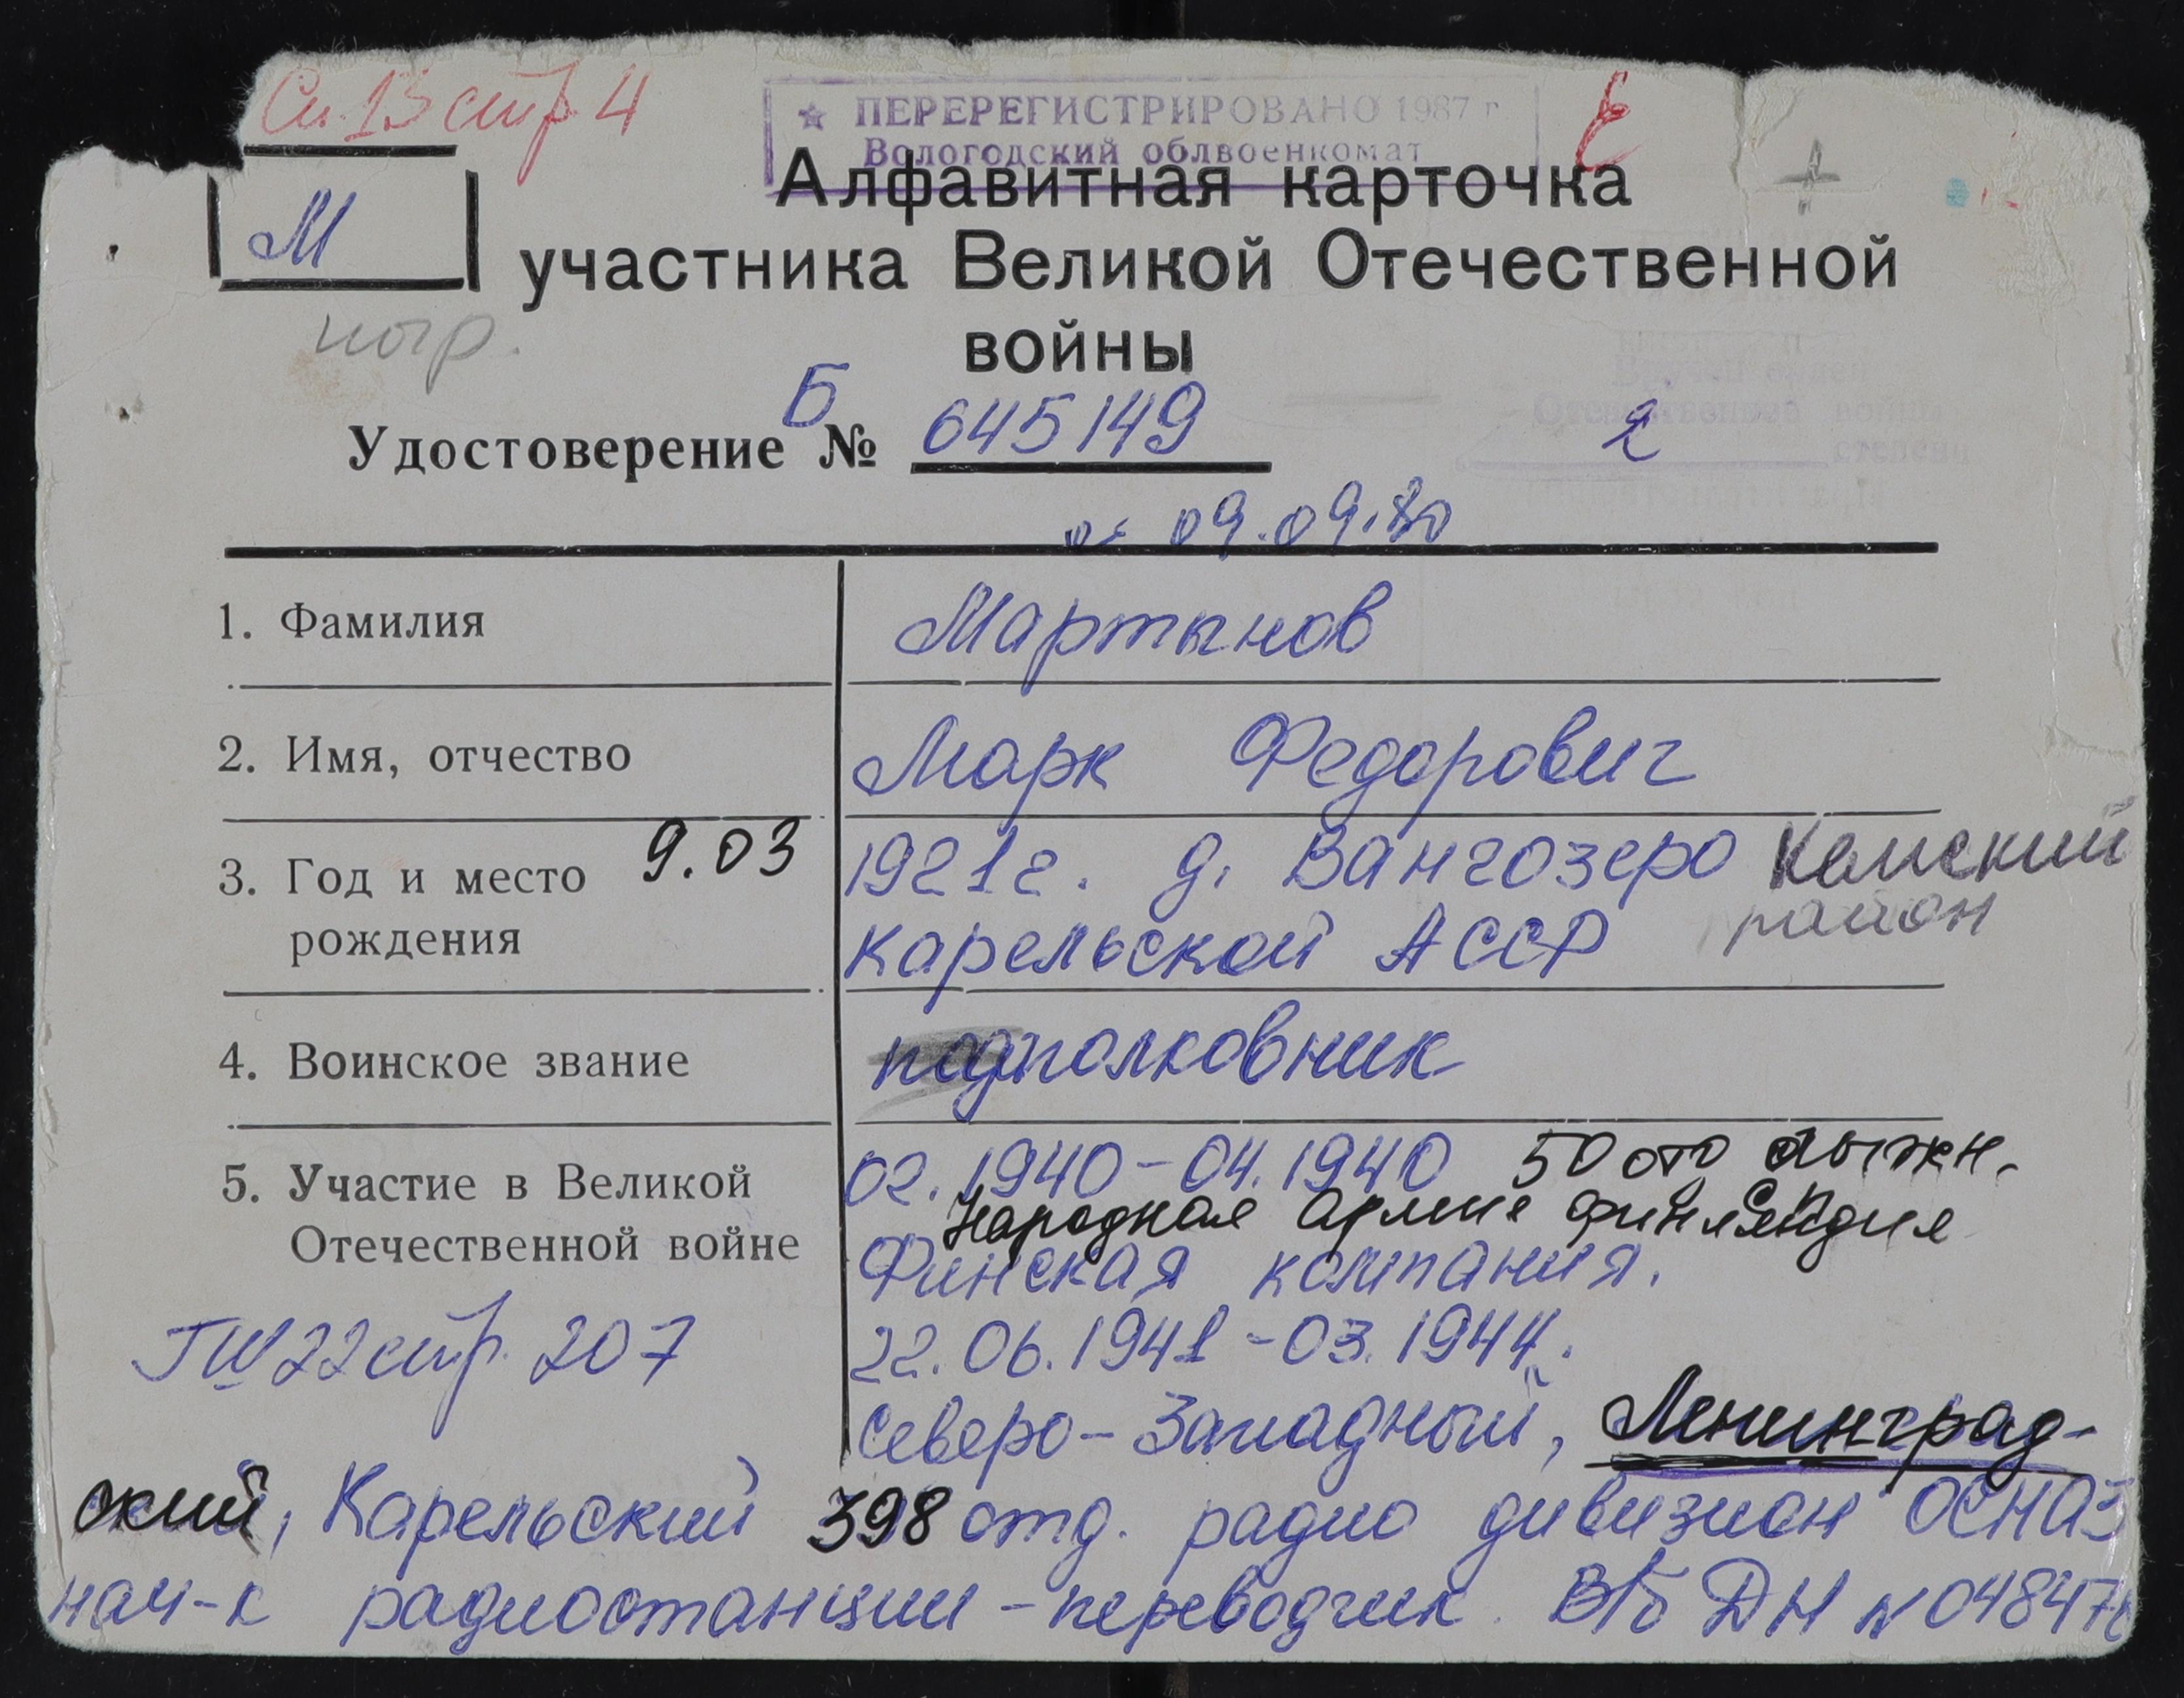 Сп. 13 стр 4
★ ПЕРЕРЕГИСТРИРОВАНО 1987 г
Вологодский облвоенкомат
М
Алфавитная карточка
участника Великой Отечественной
войны
Б
Удостоверение № 645149
2
от 09.09.80
1. Фамилия Мартынов
2. Имя, отчество Марк Федорович
3. Год и место 9.03 1921г. д. Вангозеро Кемский
рождения Карельской АССР район
4. Воинское звание подполковник
02.1940-04.1940 50 лыжн.
5. Участие в Великой Народная Армия Финляндия
Отечественной войне Финская компания.
ГШ 22 стр. 207 22.06.1941-03.1944.
Северо-Западный, Ленинград-
ский, Карельский 398 отд. радио дивизион ОСНАЗ
нач-к радиостанции - переводчик. ВБ ДН №